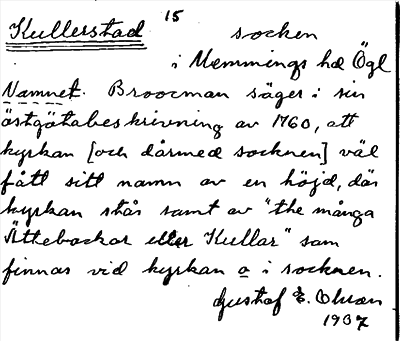 15
Kullerstad socken
i Memmings hd Ögl
Namnet. Broocman säger i sin
östgötabeskrivning av 1760, att
kyrkan [och därmed socknen] väl
fått sitt namn av en höjd, där
kyrkan står samt av "the många
Ättebackar eller Kullar" som
finnas vid kyrkan o i socknen.
Gustaf E.
1937